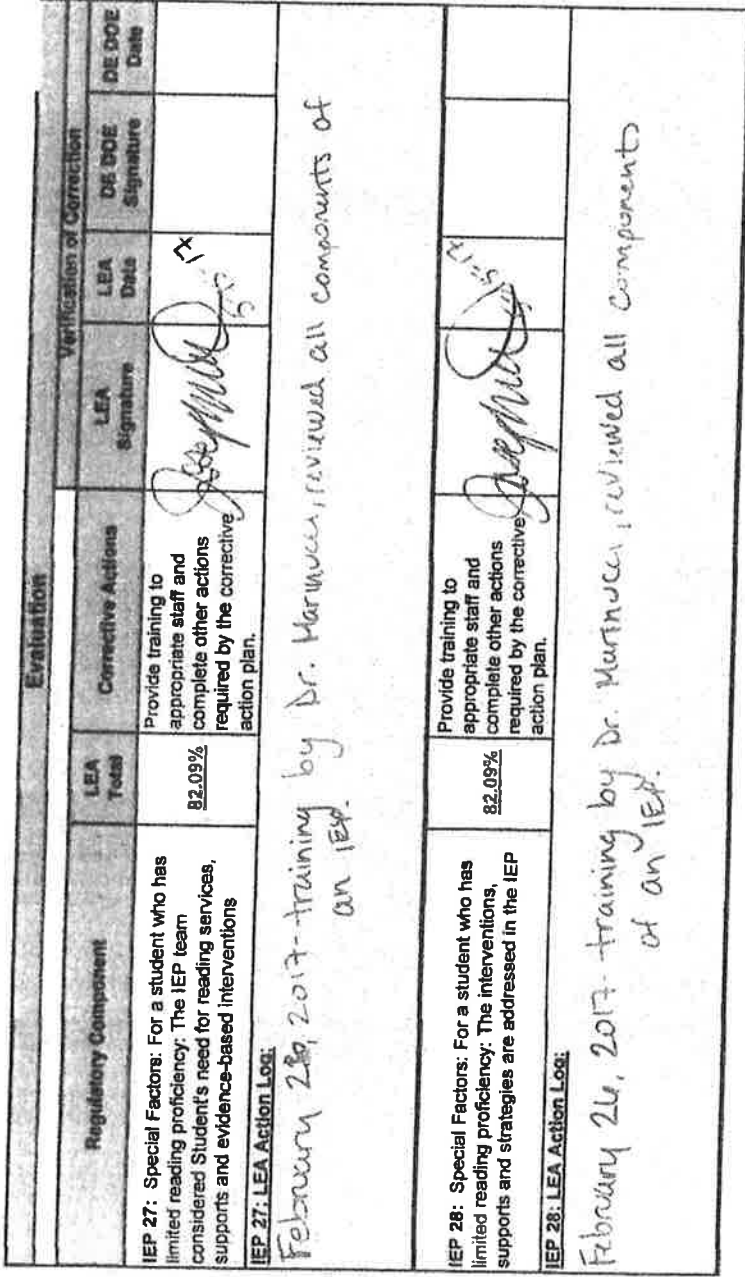 Evaluation
Verification of Correction
Regulatory Component
LEA
Total
Corrective Actions
LEA
Signature
LEA
Date
DE DOE
Signature
DE DOE
Date
IEP 27: Special Factors: For a student who has
limited reading proficiency: The IEP team
considered Student's need for reading services,
supports and evidence-based interventions
82.09%
Provide training to
appropriate staff and
complete other actions
required by the corrective
action plan.
IEP 27: LEA Action Log:
February 2017- training by Dr. Marinucci, reviewed all components of
an IEP.
IEP 28: Special Factors: For a student who has
limited reading proficiency: The interventions,
supports and strategies are addressed in the IEP
82.09%
Provide training to
appropriate staff and
complete other actions
required by the corrective
action plan.
IEP 28: LEA Action Log:
February 26, 2017- training by Dr. Marinucci, reviewed all components
of an IEP.